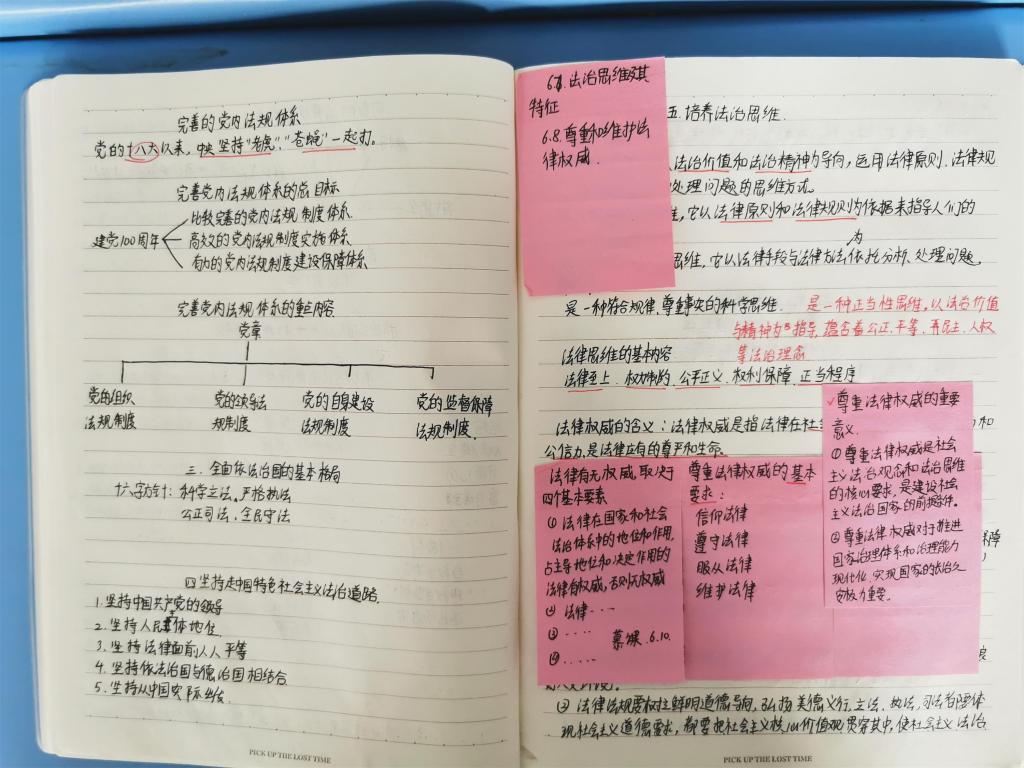 完善的党内法规体系
党的十八大以来，中央坚持"老虎"、"苍蝇"一起打。
完善党内法规体系的总目标
建党100周年
比较完善的党内法规制度体系
高效的党内法规制度实施体系
有力的党内法规制度建设保障体系
完善党内法规体系的重点内容
党章
党的组织
法规制度
党的领导法
规制度
党的自身建设
法规制度
党的监督保障
法规制度.
三、全面依法治国的基本格局
十六字方针：科学立法、严格执法
公正司法、全民守法
四坚持走中国特色社会主义法治道路.
1.坚持中国共产党的领导
2.坚持人民主体地位
3.坚持法律面前人人平等
4.坚持依法治国与德治国相结合
5.坚持从中国实际出发
PICK UP THE LOST TIME
法治思维及其
特征
6.8.尊重和维护法
律权威.
五.培养法治思维.
法治价值和法治精神为导向，运用法律原则、法律规
处理问题的思维方式。
它以法律原则和法律规则为依据来指导人们的
思维，它以法律手段与法律方法为依托分析、处理问题，
是一种符合规律、尊重事实的科学思维.
是一种正当性思维，以法治价值
与精神为指导，蕴含着公正、平等、民主、人权
等法治理念
法律思维的基本内容
法律至上、权力制约、公平正义、权利保障、正当程序
法律权威的含义：法律权威是指法律在社
和
公信力，是法律应有的尊严和生命.
法律有无权威，取决于
四个基本要素
①法律在国家和社会
治体系中的地位和作用，
占主导地位和决定作用的
法律有权威，否则无权威
②法律...
③....
④.....
慕课.6.10.
尊重法律权威的基本
要求：
信仰法律
遵守法律
服从法律
维护法律
尊重法律权威的重要
意义.
①尊重法律权威是社会
主义法治观念和法治思维
的核心要求，是建设社会
主义法治国家的前提条件。
②尊重法律权威对于推进
国家治理体系和治理能力
现代化、实现国家的长治久
安极为重要.
障
②法律法规要树立鲜明道德导向，弘扬美德义行，立法、执法、司法都要体
现社会主义道德要求，都要把社会主义核心价值观贯穿其中，使社会主义法治
PICK UP THE LOST TIME